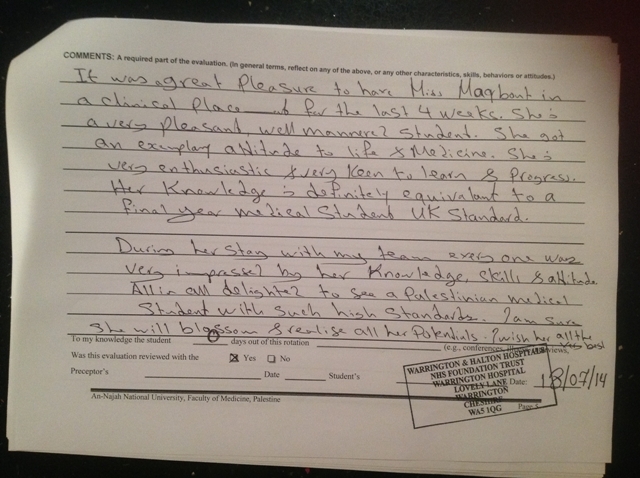 COMMENTS: A required part of the evaluation. (In general terms, reflect on any of the above, or any other characteristics, skills, behaviors or attitudes.)
It was great Pleasure to have Miss Maqbout in
a clinical Place t for the last 4 weeks. She's
a very pleasant, well mannered student. She got
an exemplary attitude to life & Medicine. She's
very enthusiastic & very Keen to learn & Progress.
Her Knowledge is definitely equivalant to a
final year medical Student UK Standard.
During her stay with my team every one was
very impressed by her Knowledge, skills & attitude
All in all delighted to see a Palestinian medical
Student with such high Standards. I am sure
She will blossom & realise all her Potentials. I wish her all the
very best
To my knowledge the student 0 days out of this rotation (e.g., conferences,
Was this evaluation reviewed with the Yes No
Preceptor's Date Student's Date: 18/07/14
WARRINGTON & HALTON HOSPITALS
NHS FOUNDATION TRUST
WARRINGTON HOSPITAL
LOVELY LANE
WARRINGTON
CHESHIRE
WA5 1QG
An-Najah National University, Faculty of Medicine, Palestine Page